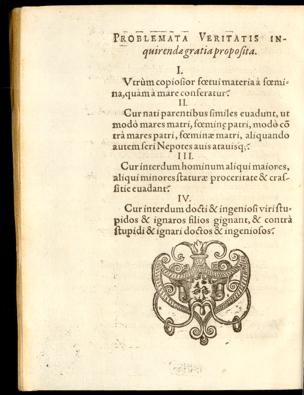 PROBLEMATA VERITATIS IN-
quirenda gratia proposita.
I.
Vtrùm copiosior fœtui materia à fœmi-
na, quàm à mare conferatur?
II.
Cur nati parentibus similes euadunt, ut
modò mares matri, fœminę patri, modò cõ
trà mares patri, fœminæ matri, aliquando
autem seri Nepotes auis atauisq;?
III.
Cur interdum hominum aliqui maiores,
aliqui minores staturæ proceritate & cras-
sitie euadant?
IV.
Cur interdum docti & ingeniosi viri stu-
pidos & ignaros filios gignant, & contrà
stupidi & ignari doctos & ingeniosos?